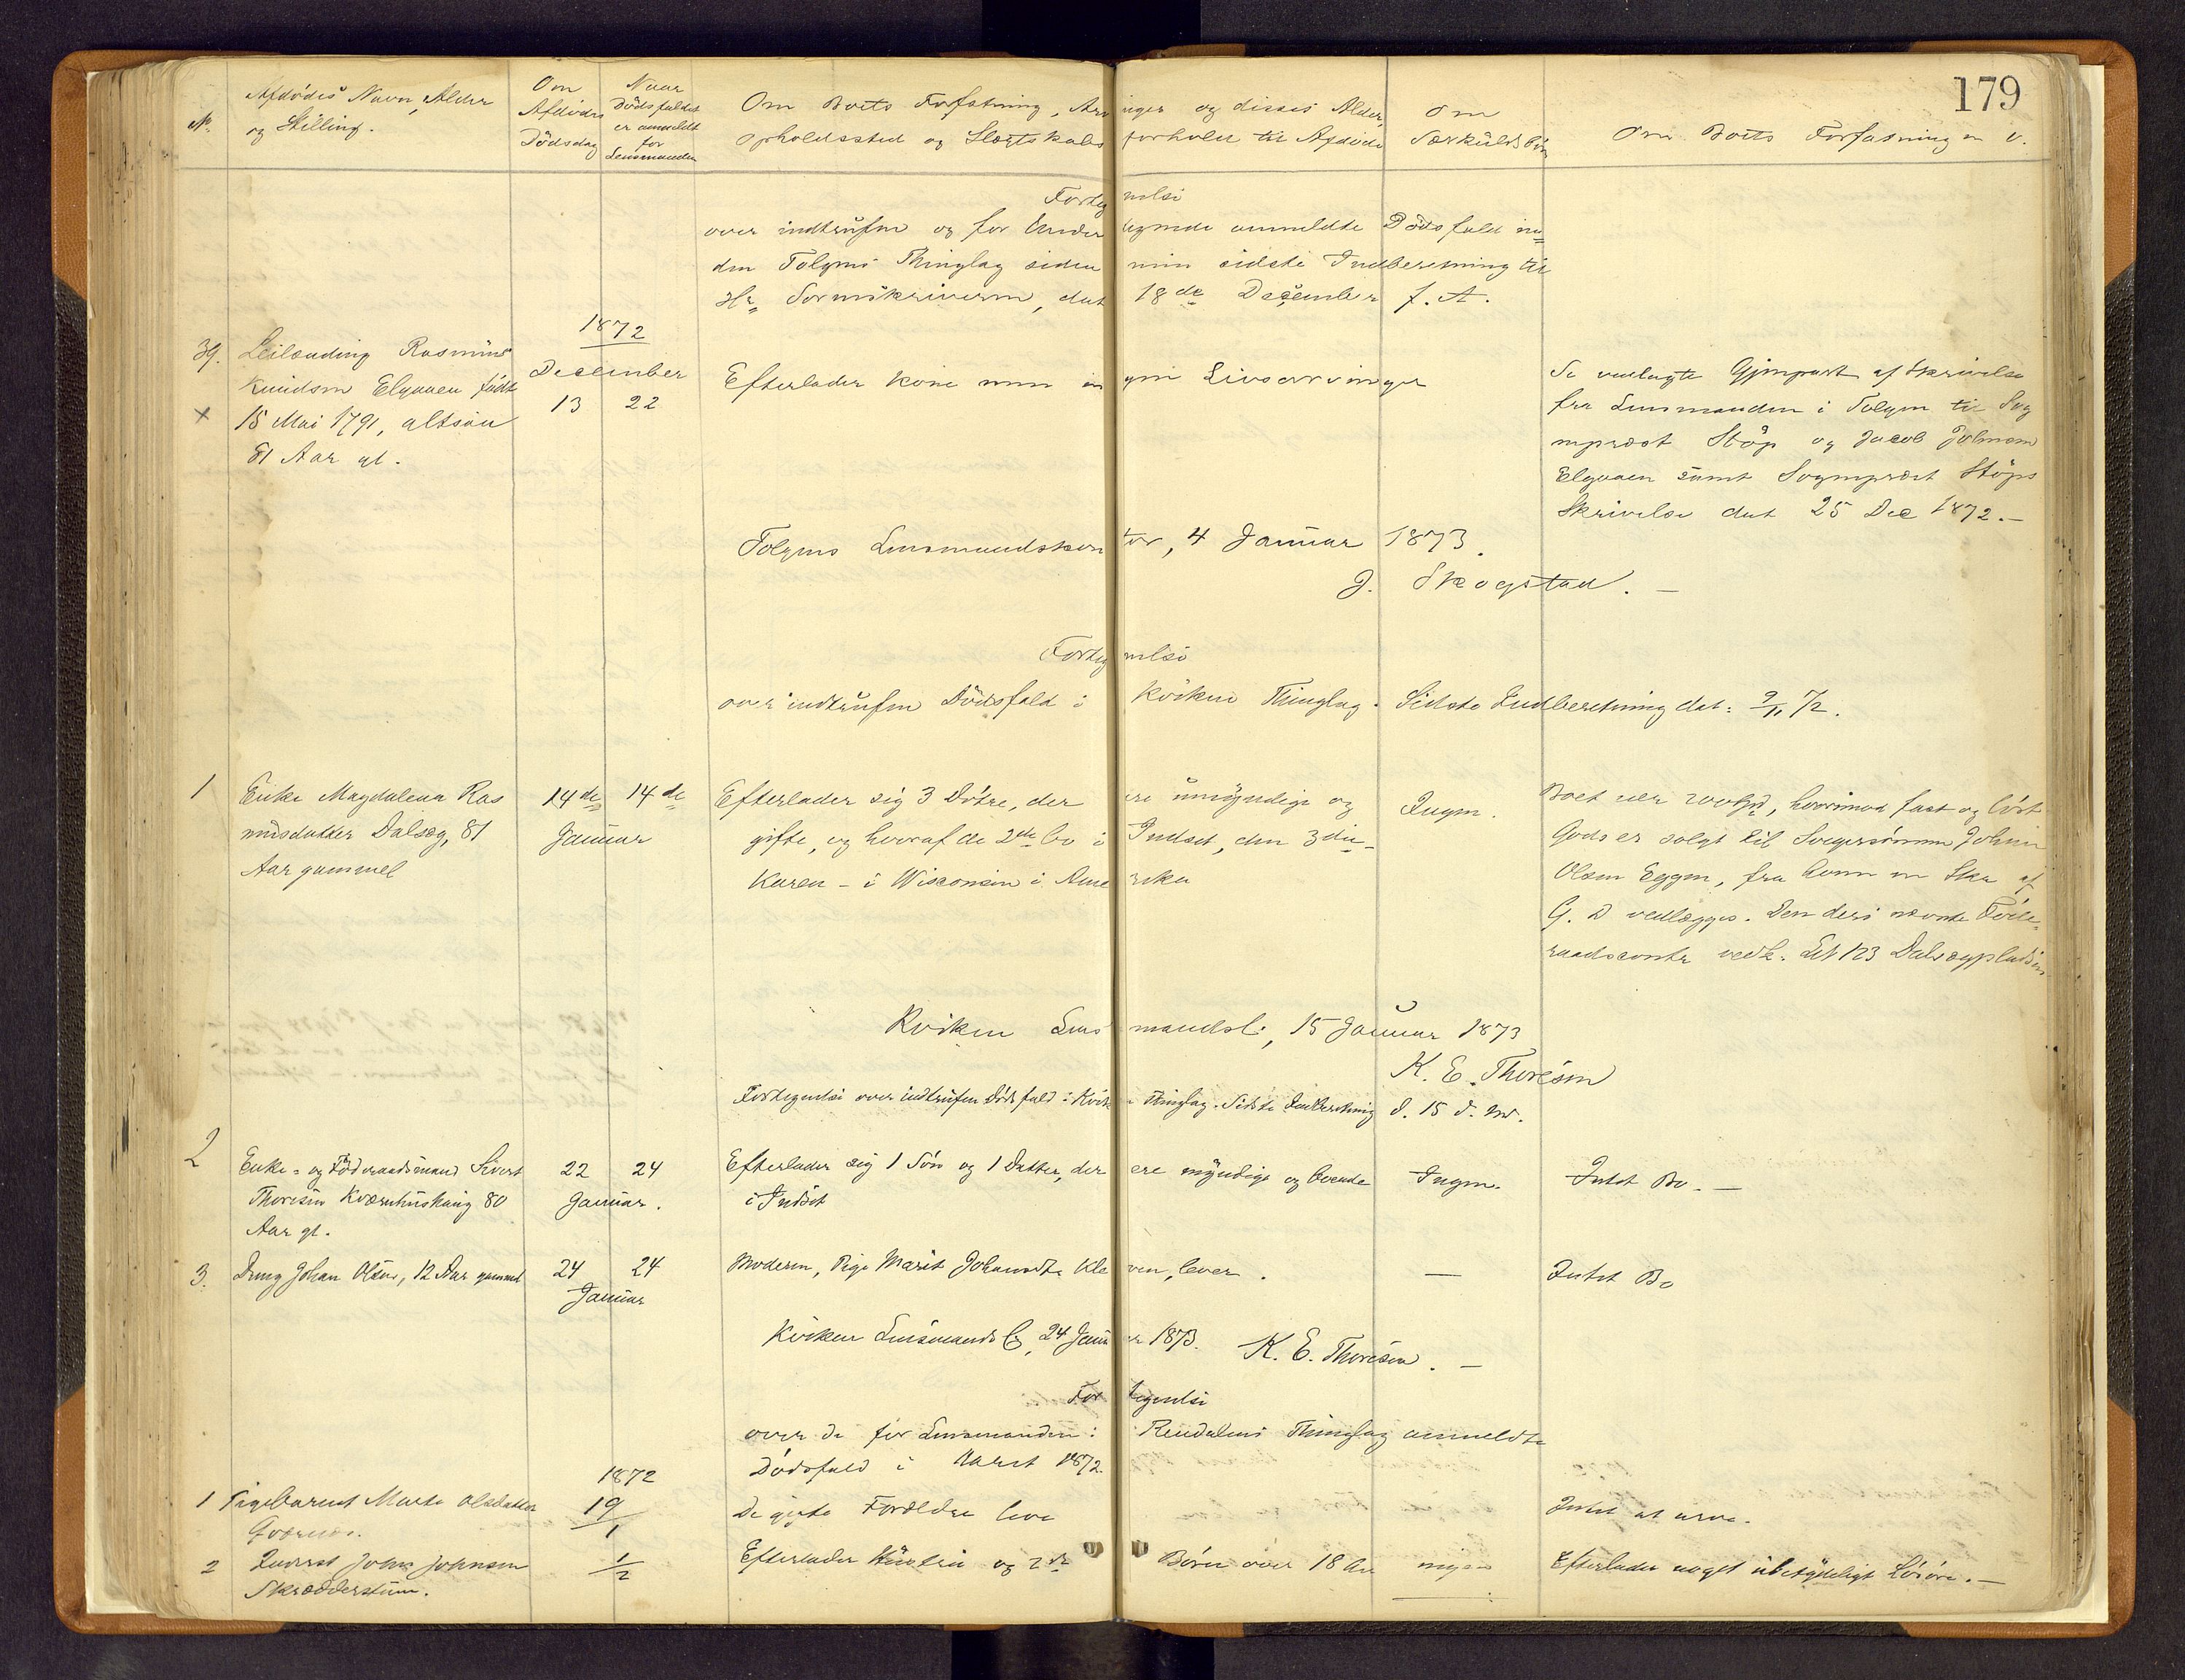 179
No. Afdödes Navn, Alder og Stilling.
Om Afdödes Dödsdag
Naar Dödsfaldet er anmeldt for Lensmanden
Om Boets Forfatning, Arvinger og disses Alder,
Opholdssted og Slægtskabsforhold til Afdöde
Om Særkuldsbörn
Om Boets Forfatning m v.
Fortegnelse
over indtrufne og for Undertegnede anmeldte Dödsfald in=
den Tolgens Thinglag siden min sidste Indberetning til
Hr. Sorenskriveren, dat 18de December f. A.
1872
39. Leilending Rasmus
Knudsen Elgaaen födt
15 Mai 1791, altsaa
81 Aar gl.
December
13 22
Efterlader Kone men ingen Livsarvinger
Se vedlagte Gjenpart af Skrivelse
fra Lensmanden i Tolgen til Sog
neprest Stöp og Jacob Johnsen
Elgaaen samt Sogneprest Stöps
Skrivelse dat 25 Dec 1872.—
Tolgens Lensmandskontor, 4 Januar 1873.
J. Skogstad. —
Fortegnelse
over indtrufne Dödsfald i Kvikne Thinglag. Sidste Indberetning dat: 9/11 72.
1 Enke Magdalena Ras
musdatter Dalsæg, 81
Aar gammel
14de 14de
Januar
Efterlader sig 3 Dötre, der ere umyndige og
gifte, og hvoraf de 2de bo i Indset, den 3die—
Karen – i Wisconsin i Amerika
Ingen.
Boet hvorimod fast og löst
Gods er solgt til Svigersönnen Johan
Olsen Eggen, fra ham en Skr af
G. D vedlægges. Den deri nævnte Föde=
raadscontr vedk. Lit 123 Dalsægpladsen
Kvikne Lensmandsb:, 15 Januar 1873
K. E. Thoresen
Fortegnelse over indtrufne Dödsfald i Kvikne Thinglag. Sidste Indberetning d. 15 d. M.
2 Enke= og Föderaadsmand Sivert
Thoresen Kværnhuskaug 80
Aar gl.
22 24
Januar.
Efterlader sig 1 Sön og 1 Datter, der ere myndige og boende
i Indset
Ingen.
Intet Bo. —
3. Dreng Johan Olsen, 12 Aar gammel
24 24
Januar
Moderen, Pige Marit Johansdtr Kleven, lever.
—
Intet Bo
Kvikne Lensmandsb, 24 Januar 1873.
K. E. Thoresen. —
Fortegnelse
over de for Lensmanden i Rendalens Thinglag anmeldte
Dödsfald i Aaret 1872.
1872
1 Pigebarnet Marte Olsdatter
19/1
De gifte Forældre leve
Intet at arve.
2 Inderst John Johnsen
Skrædderstuen.
1/2
Efterlader og 2de Börn over 18 Aar
ingen
Efterlader noget ubetydeligt Lösöre. —